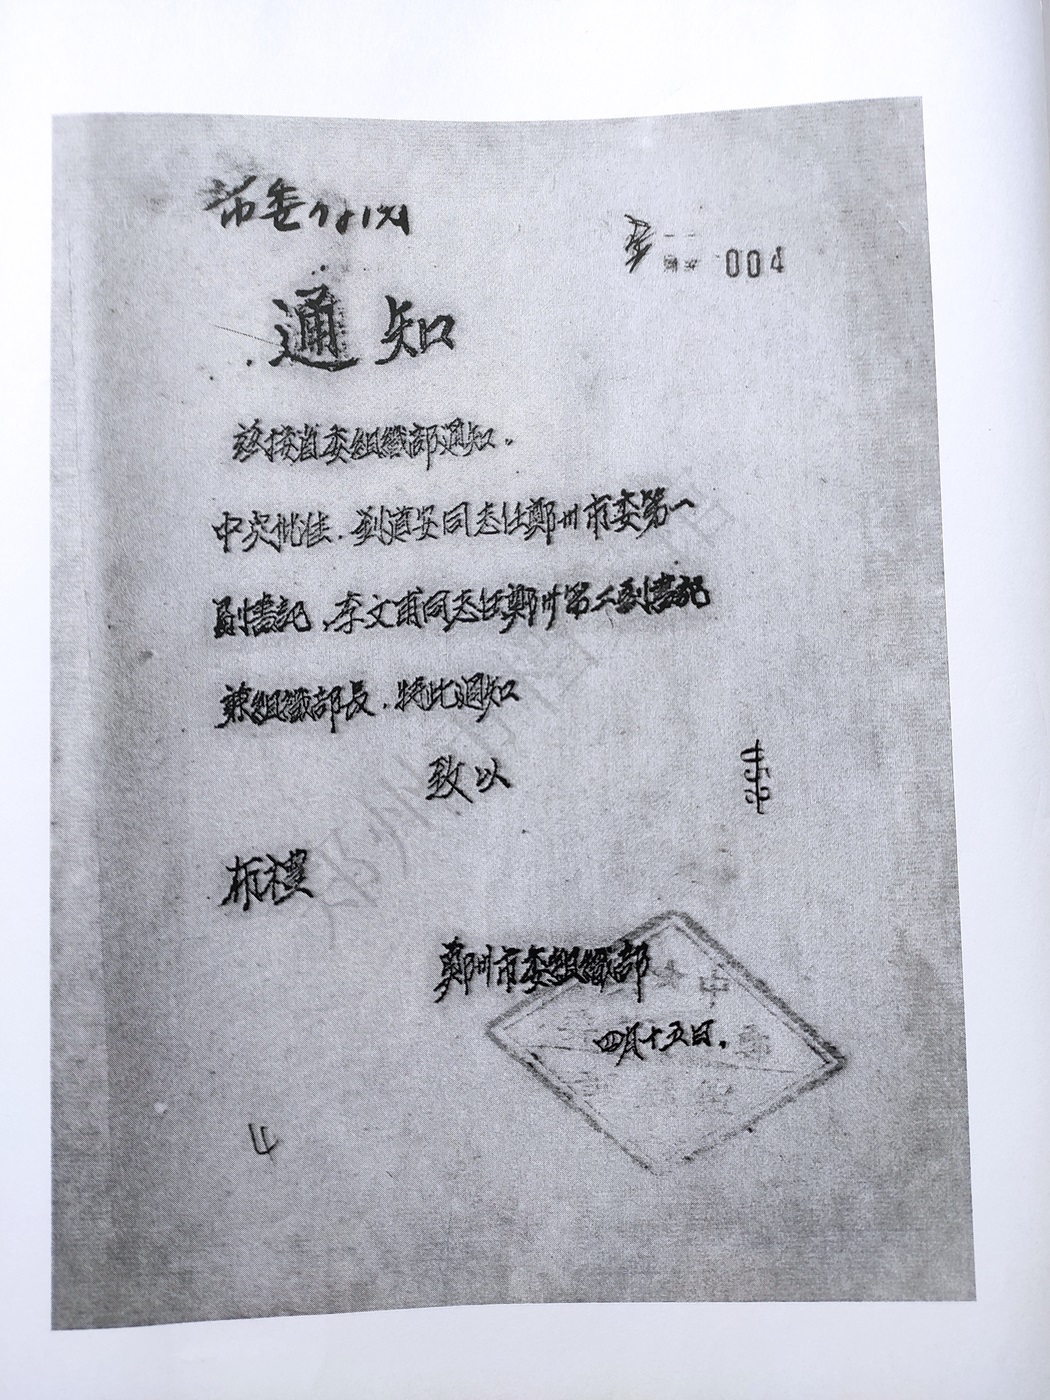 市委
004
通知
兹接省委组织部通知。
中央批准.刘道安同志任鄭州市委第一
副書記,李文甫同志任鄭州第二副書記
兼組織部長.特此通知
致以
布禮
鄭州市委組織部
四月十五日.
4